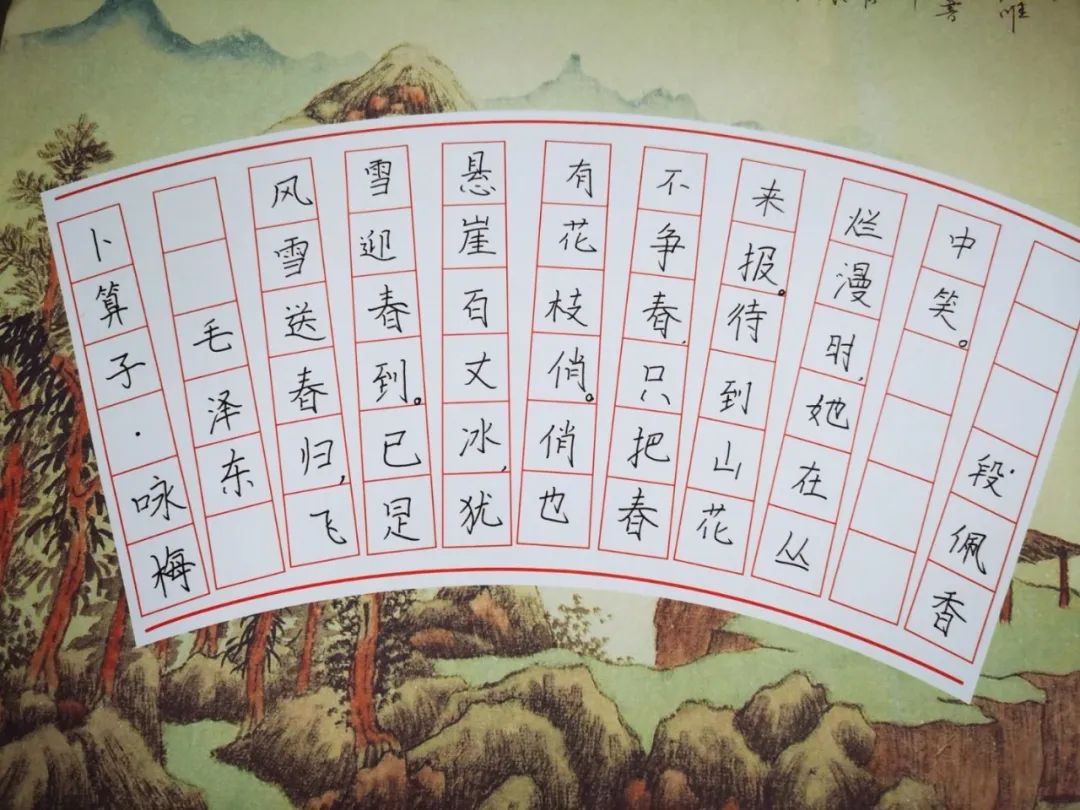 卜算子·咏梅
毛泽东
风雪送春归，飞
雪迎春到。已是
悬崖百丈冰，犹
有花枝俏。俏也
不争春，只把春
来报。待到山花
烂漫时，她在丛
中笑。
段佩香